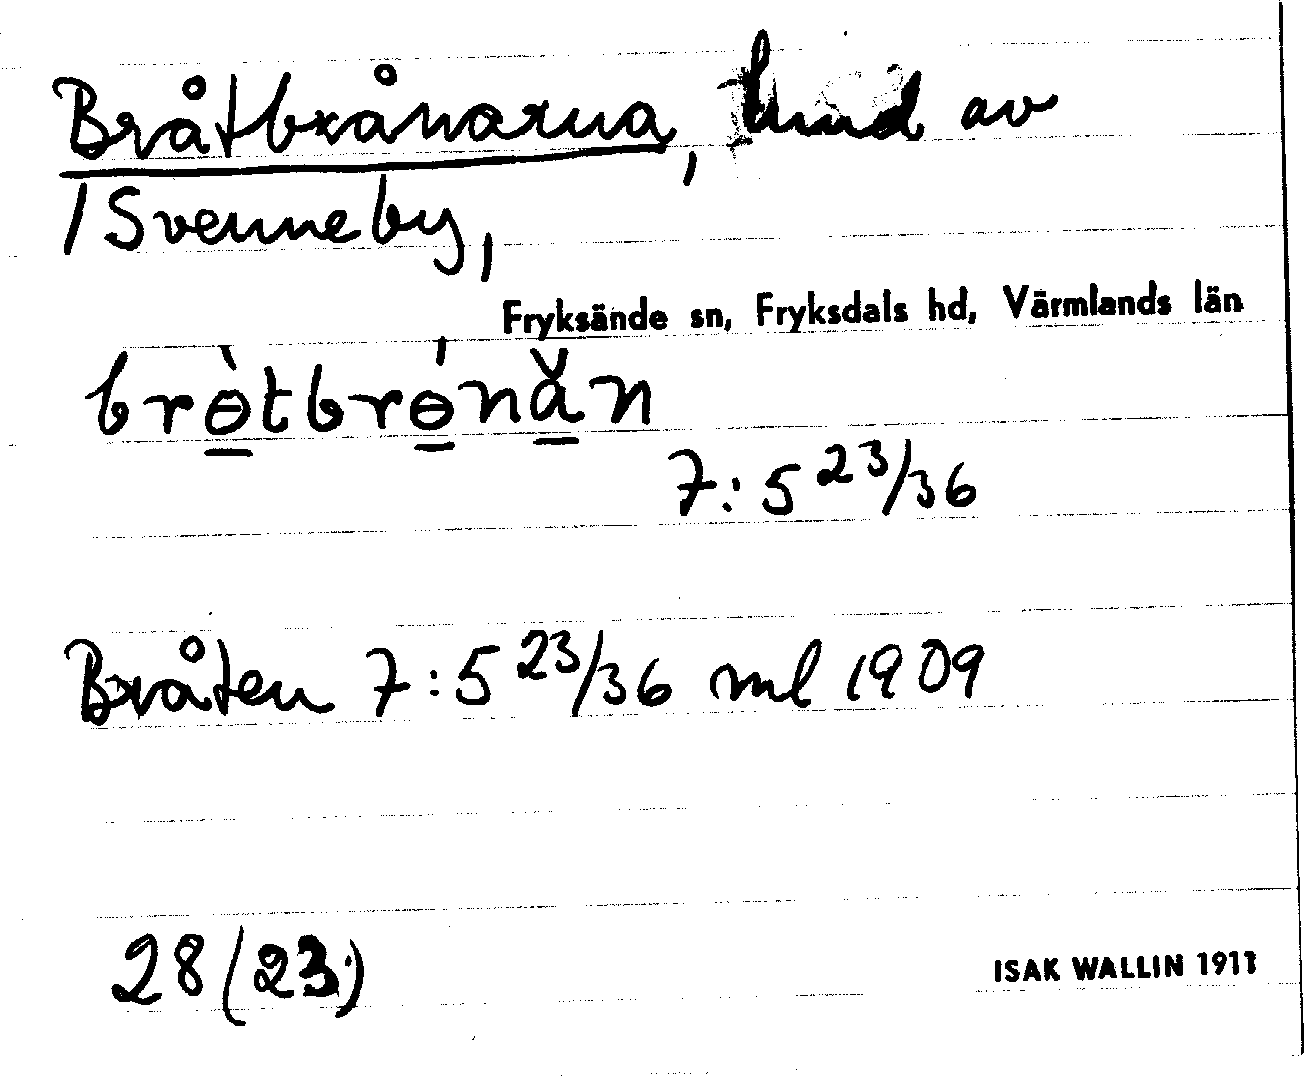 Bråtbrånarna, hmd av
/Svenneby,
Fryksände sn, Fryksdals hd, Värmlands län
brɵ̀tbrɵ́nǎn
7:5 23/36
Bråten 7:5 23/36 ml 1909
28 (23)
ISAK WALLIN 1911